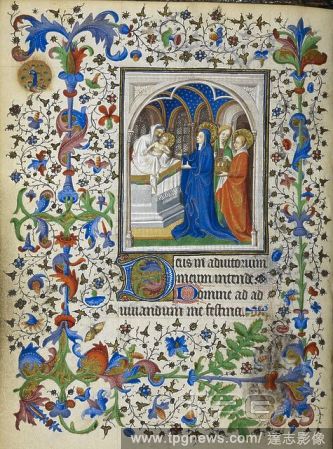 Deus in adiutorium
meum intende
Domine ad ad
iuuandum me festina
www.tpgnews.com/ 達志影像